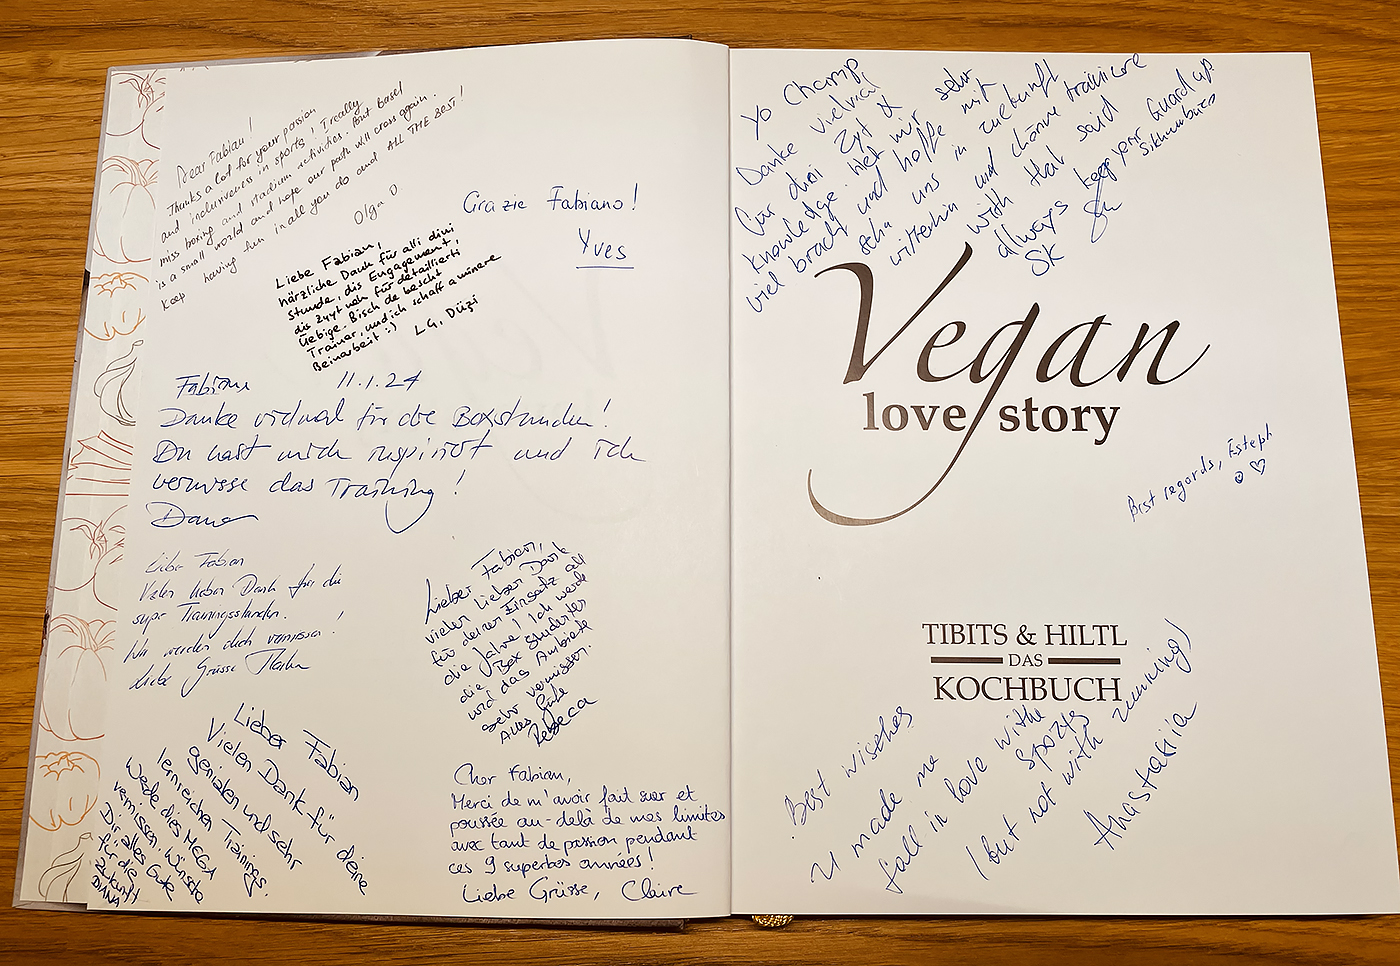 Dear Fabian!
Thanks a lot for your passion
and inclusiveness in sports, I really
miss boxing and stadium activities. But Basel
is a small world and hope our path will cross again.
Keep having fun in all you do and ALL THE BEST!
Olga D
Grazie Fabiano!
Yves
Liebe Fabian,
härzliche Dank für alli dini
Stunde, dis Engagement,
dis Zuyt neh für detaillierti
Üebige. Bisch de bescht
Trainer, und ich schaff a minere
Beinarbeit :)
LG, Düzi
Fabian 11.1.24
Danke vielmal für die Boxstunden!
Du hast mich inspiriert und ich
vermisse das Training!
Dana
Liebe Fabian
Vielen lieben Dank für die
super Trainingsstunden.
Wir werden dich vermissen!
Liebe Grüsse
Lieber Fabian,
vielen lieben Dank
für deinen Einsatz all
die Jahre! Ich werde
die Box Stunden
und das Ambiente
sehr vermissen.
Alles Gute
Rebeca
Lieber Fabian
Vielen Dank für deine
genialen und sehr
lernreichen Trainings.
Werde dies MEGA
vermissen. Wünsche
Dir alles Gute
für die
Zukunft
DIANA
Cher Fabian,
Merci de m'avoir fait suer et
poussée au-delà de mes limites
avec tant de passion pendant
ces 9 superbes années!
Liebe Grüsse, Claire
Yo Champ,
Danke vielmal
für dini Zyt &
knowledge. Het mir sehr
viel bracht und hoffe mit
scha uns in zuekunft
witterhin und chönne trainiere
with that said
always keep your Guard up
SK Sikhumbuzo
Vegan
love story
Best regards, Esteph
TIBITS & HILTL
DAS
KOCHBUCH
Best wisches
U made me
fall in love withe
spozts
(but not with running)
Anastasiia